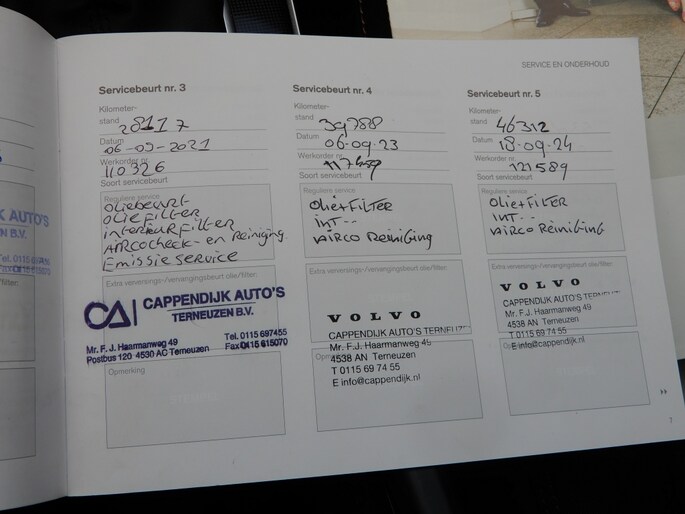 SERVICE EN ONDERHOUD
Servicebeurt nr. 3
Kilometer-
stand 28117
Datum 06-09-2021
Werkorder nr. 110326
Soort servicebeurt
Reguliere service
Oliebeurt
Oliefilter
interieurfilter
Aircocheck- en Reiniging
Emissie service
Extra verversings-/vervangingsbeurt olie/filter:
CAPPENDIJK AUTO'S
TERNEUZEN B.V.
Mr. F.J. Haarmanweg 49 Tel. 0115 697455
Postbus 120 4530 AC Terneuzen Fax 0115 615070
Opmerking
Servicebeurt nr. 4
Kilometer-
stand 39788
Datum 06.09.23
Werkorder nr.
Soort servicebeurt
Reguliere service
Olie+FILTER
INT--
AIRCO Reiniging
Extra verversings-/vervangingsbeurt olie/filter:
VOLVO
CAPPENDIJK AUTO'S TERNEUZ
Mr. F.J. Haarmanweg 45
4538 AN Terneuzen
T 0115 69 74 55
E info@cappendijk.nl
Servicebeurt nr. 5
Kilometer-
stand 46312
Datum 18.09.24
Werkorder nr. 121589
Soort servicebeurt
Reguliere service
Olie+FILTER
INT--
AIRCO Reiniging
Extra verversings-/vervangingsbeurt olie/filter:
VOLVO
CAPPENDIJK AUTO'S
Mr. F.J. Haarmanweg
4538 AN Terneuzen
T 0115 69 74 55
E info@cappendijk.nl
7
K AUTO'S
N B.V.